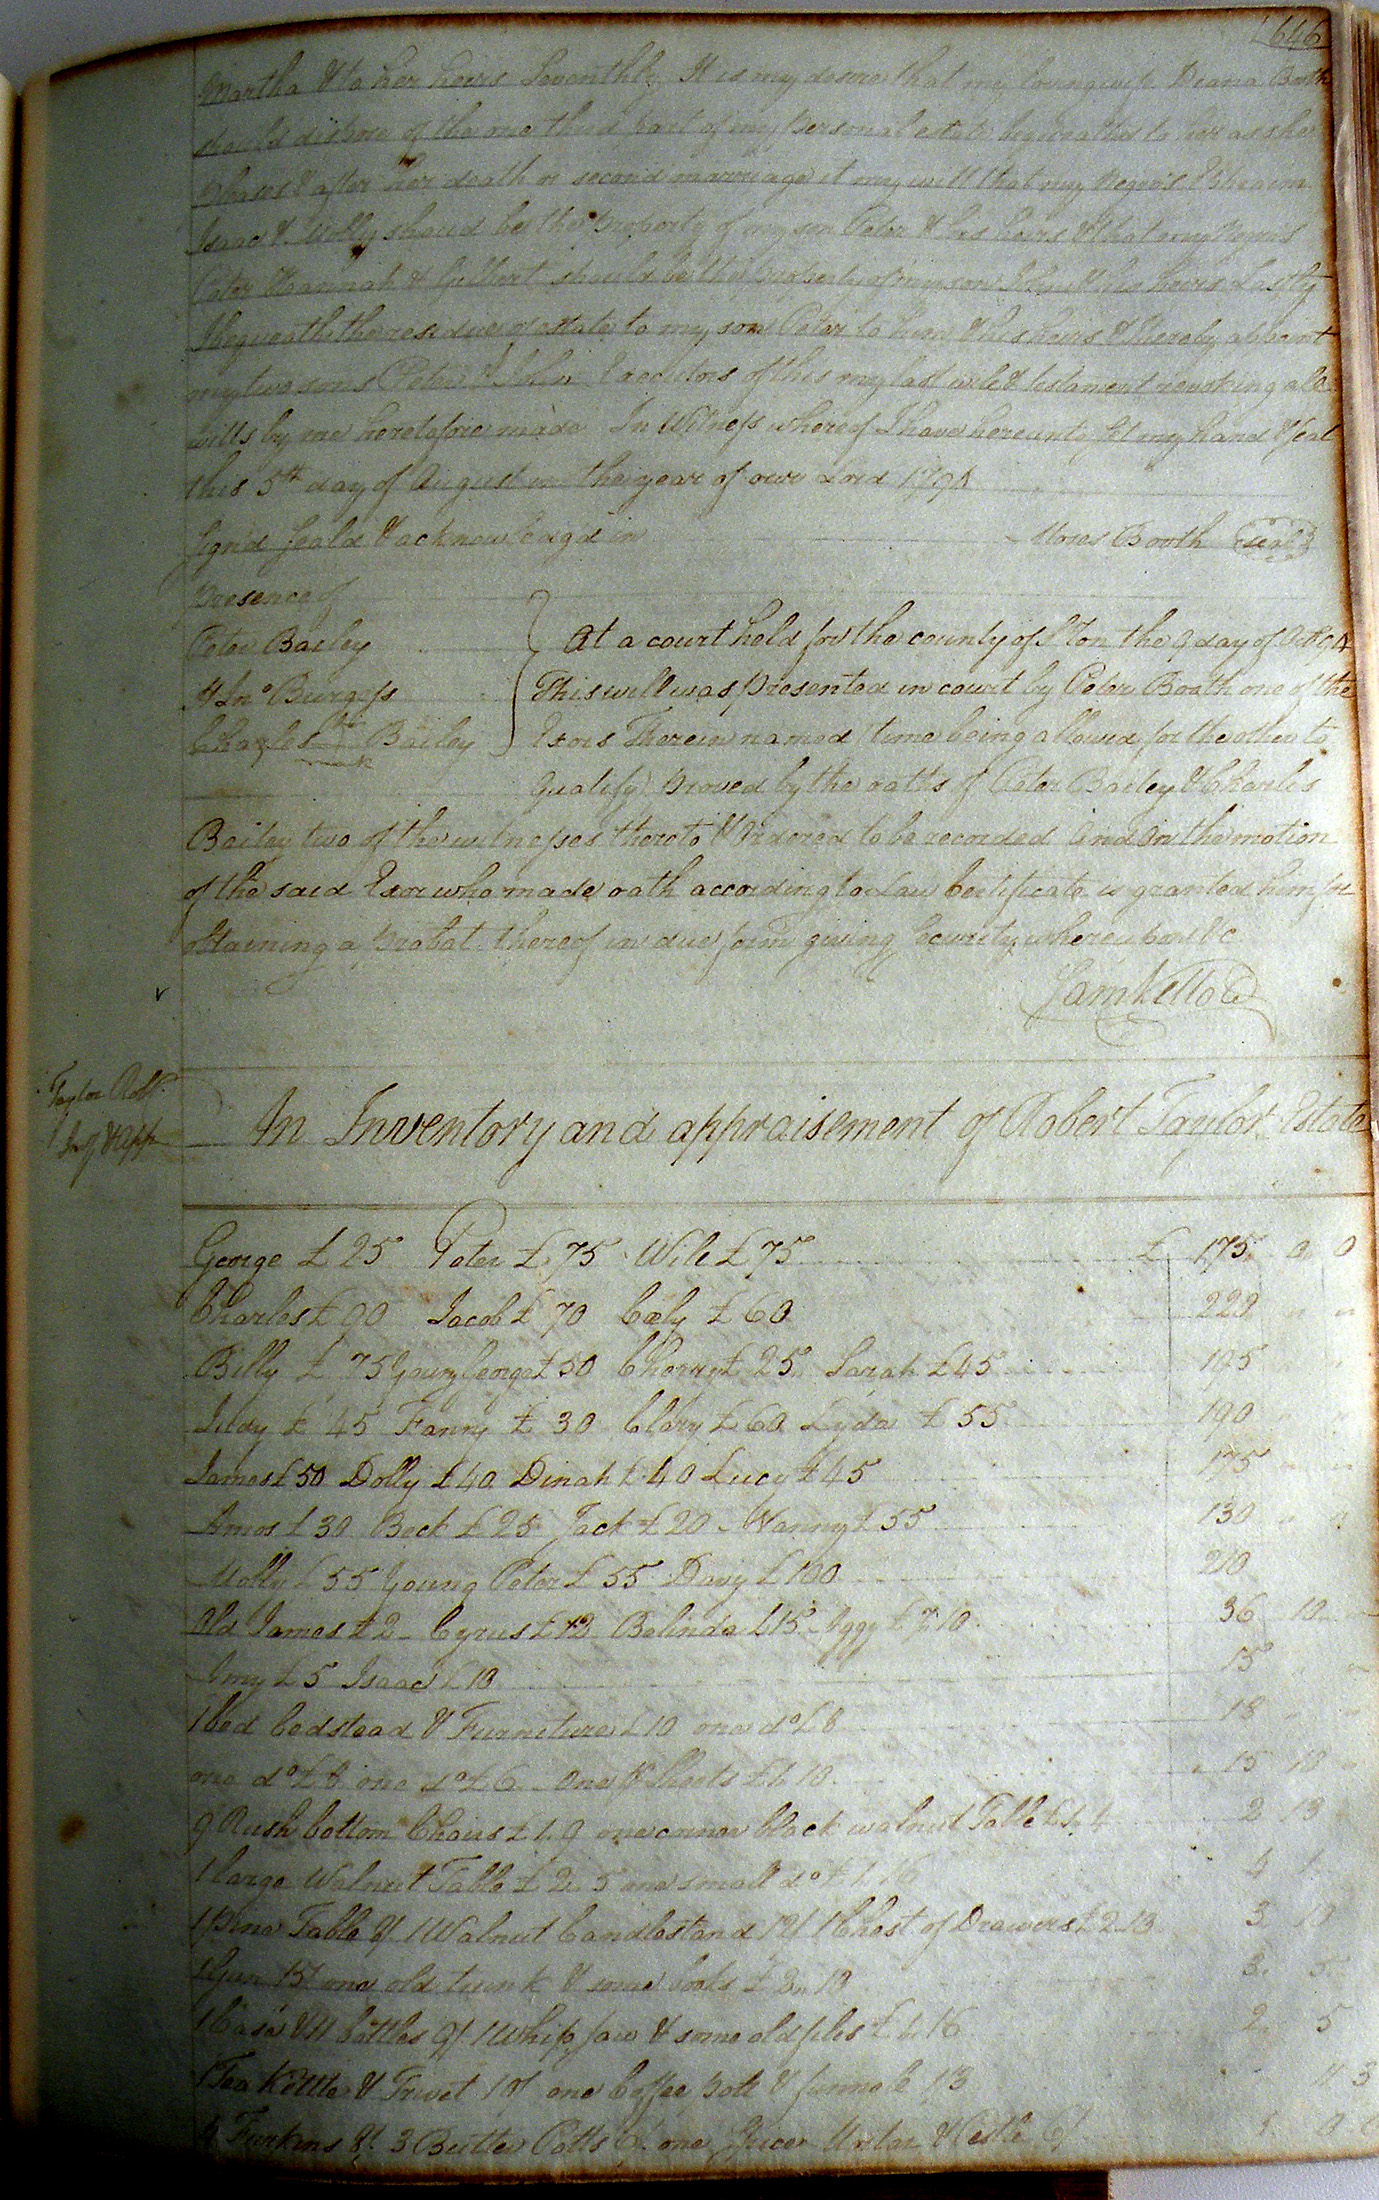 646
Martha & to her heirs Seventhly It is my desire that my loving wife Diana Booth
should dispose of the one third part of my personal estate bequeathed to her as she
pleases & after her death or second marriage it my will that my Negro's Ephraim
Isaac & Milly should be the property of my son Peter & his heirs & that my Negro's
Peter Hannah & Gilbert should be the property of my son John & his heirs Lastly
I bequeath the residue of estate to my son Peter to him & his heirs & I hereby appoint
my two sons Peter & John Executors of this my last will & testament revoking all
wills by me heretofore made In Witness whereof I have hereunto set my hand & seal
this 5th day of August in the year of our Lord 1794
Sign'd Seal'd & acknowledg'd in
Moses Booth Seal
presence of
Peter Bailey
Burgess
Charles his mark Bailey
At a court held for the county of Ston the 9 day of Oct 94
This will was presented in court by Peter Booth one of the
Exors Therein named (time being allowed for the other to
qualify) proved by the oaths of Peter Bailey & Charles
Bailey two of the witnesses thereto & Ordered to be recorded and on the motion
of the said Exor who made oath according to Law Certificate is granted him for
obtaining a probat thereof in due form giving Security whereupon &c
Sam Kello
Taylor Robt.
Inv & app
An Inventory and appraisement of Robert Taylor Estate
George £ 25 Peter £ 75 Will £ 75 £ 175 0 0
Charles £ 90 Jacob £ 70 Cæly £ 60 220 " "
Billy £ 75 Young George £ 50 Cherry £ 25 Sarah £ 45 195 "
Judy £ 45 Fanny £ 30 Clary £ 60 Lyda £ 55 190
James £ 50 Dolly £ 40 Dinah £ 40 Lucy £ 45 175
Amos £ 30 Beck £ 25 Jack £ 20 Nanny £ 55 130
Molly £ 55 Young Peter £ 55 Davy £ 100 210
Old James £ 2 Cyrus £ 12 Belinda £ 15 Aggy £ 7.10 36 10
Amy £ 5 Isaac £ 10 15
1 bed bedstead & Furniture £ 10 one do £ 8 18
one do £ 8 one do £ 6 One Sheets £ 1.10 15 10
9 Rush bottom Chairs £ 1.9 one corner black walnut Table £ 1.4 2 13
1 large Walnut Table £ 2.5 one small do £ 1.16 4 1
1 pine Table 1 Walnut Candlestand 12/ 1 Chest of Drawers £ 2.10 3 10
1 Gun 15/ one old trunk & some books £ 2.10 3 5
1 Case & 11 bottles 9/ 1 Whip saw & some old files £ 1.16 2 5
1 Tea Kettle & Trivet 10/ one Coffee pott & funnele 1/3 11 3
4 Firkins 8/ 3 Butter Potts 6/ one Spice Mortar & Pestle 6/ 1 0 0